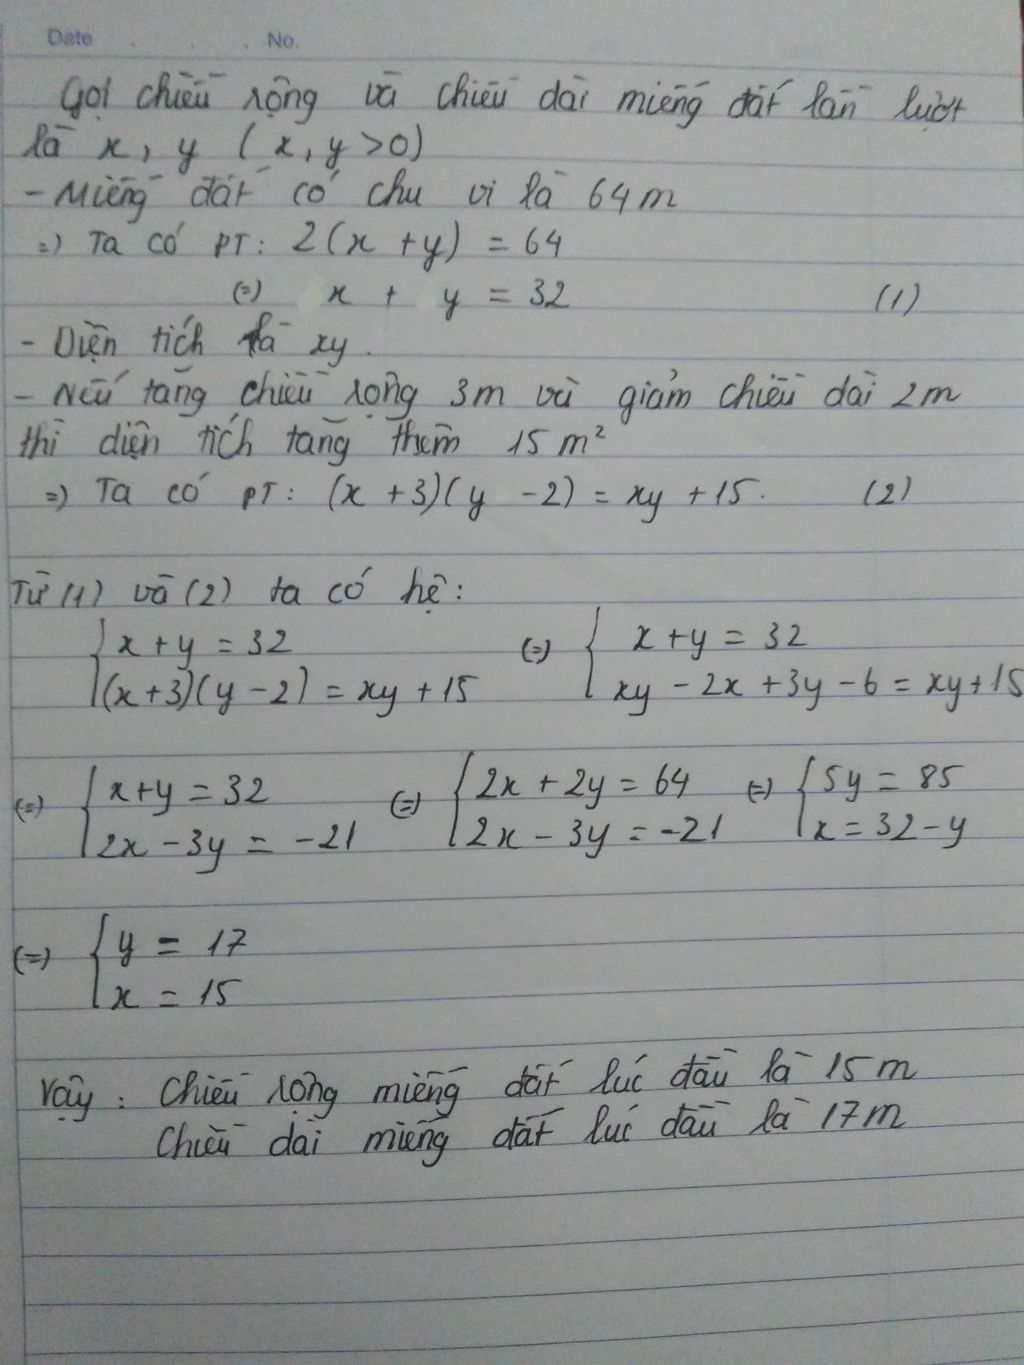 Date . . . No.
Gọi chiều rộng và chiều dài miếng đất lần lượt
là x, y ( x, y >0)
- Miếng đất có chu vi là 64 m
=) Ta có PT: 2(x + y) = 64
(=) x + y = 32 (1)
- Diện tích là xy.
- Nếu tăng chiều rộng 3m và giảm chiều dài 2m
thì diện tích tăng thêm 15 m²
=) Ta có PT: (x + 3)(y - 2) = xy + 15. (2)
Từ (1) và (2) ta có hệ:
{ x + y = 32 (=) { x + y = 32
(x+3)(y-2) = xy + 15 xy - 2x + 3y - 6 = xy + 15
(=) { x+y = 32 (=) { 2x + 2y = 64 (=) { 5y = 85
2x - 3y = -21 2x - 3y = -21 x = 32 - y
(=) { y = 17
x = 15
Vậy : Chiều rộng miếng đất lúc đầu là 15 m
Chiều dài miếng đất lúc đầu là 17 m